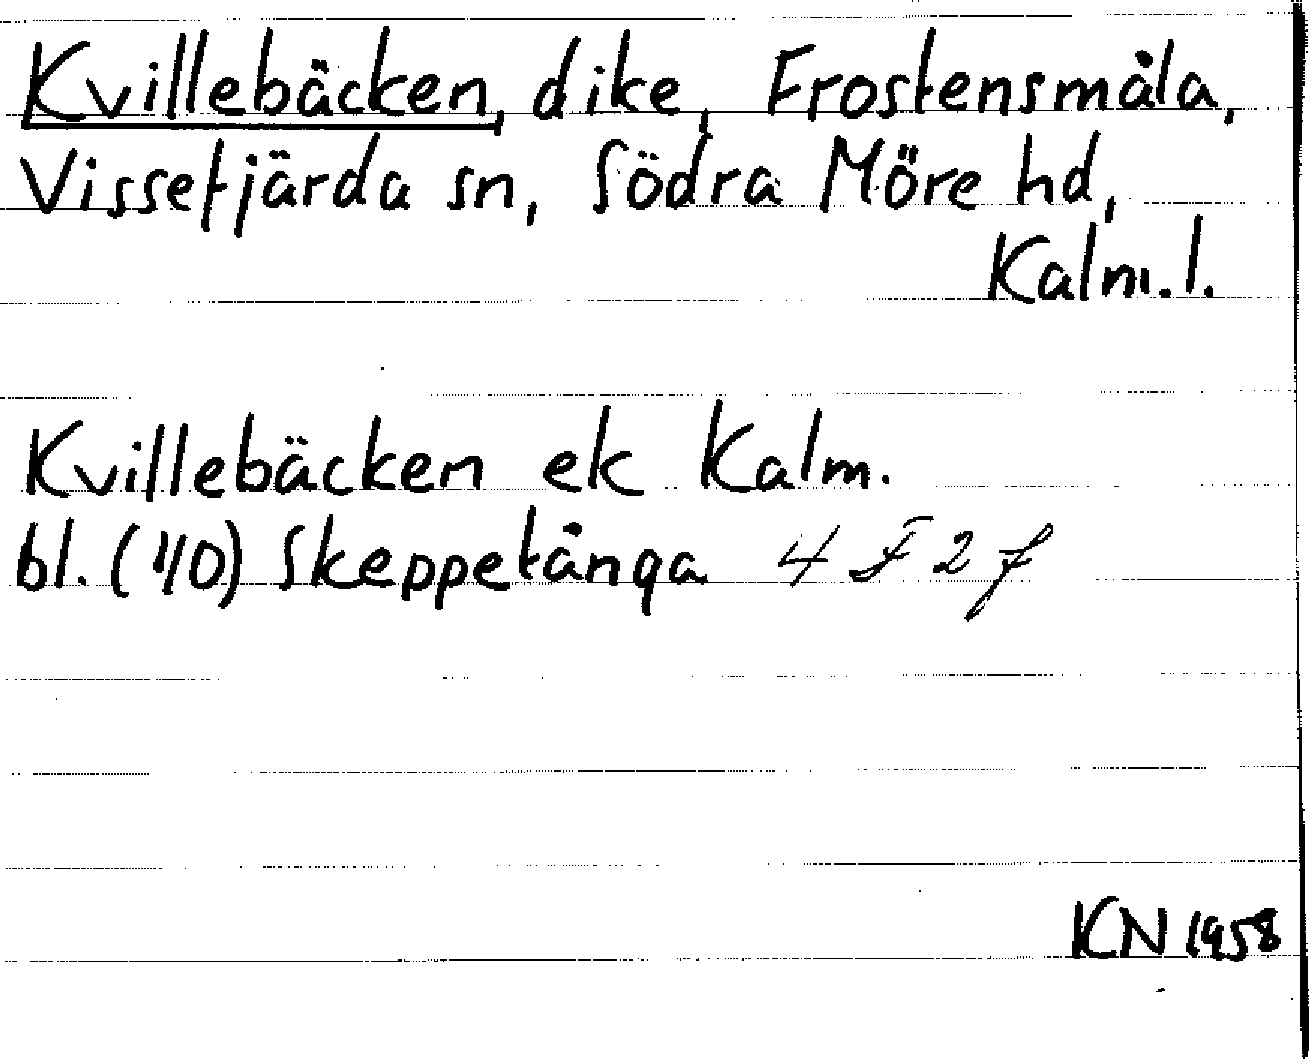 Kvillebäcken, dike, Frostensmåla,
Vissefjärda sn, Södra Möre hd,
Kalm. l.
Kvillebäcken ek Kalm.
bl. (40) Skeppetånga 4 F 2 f
KN 1958